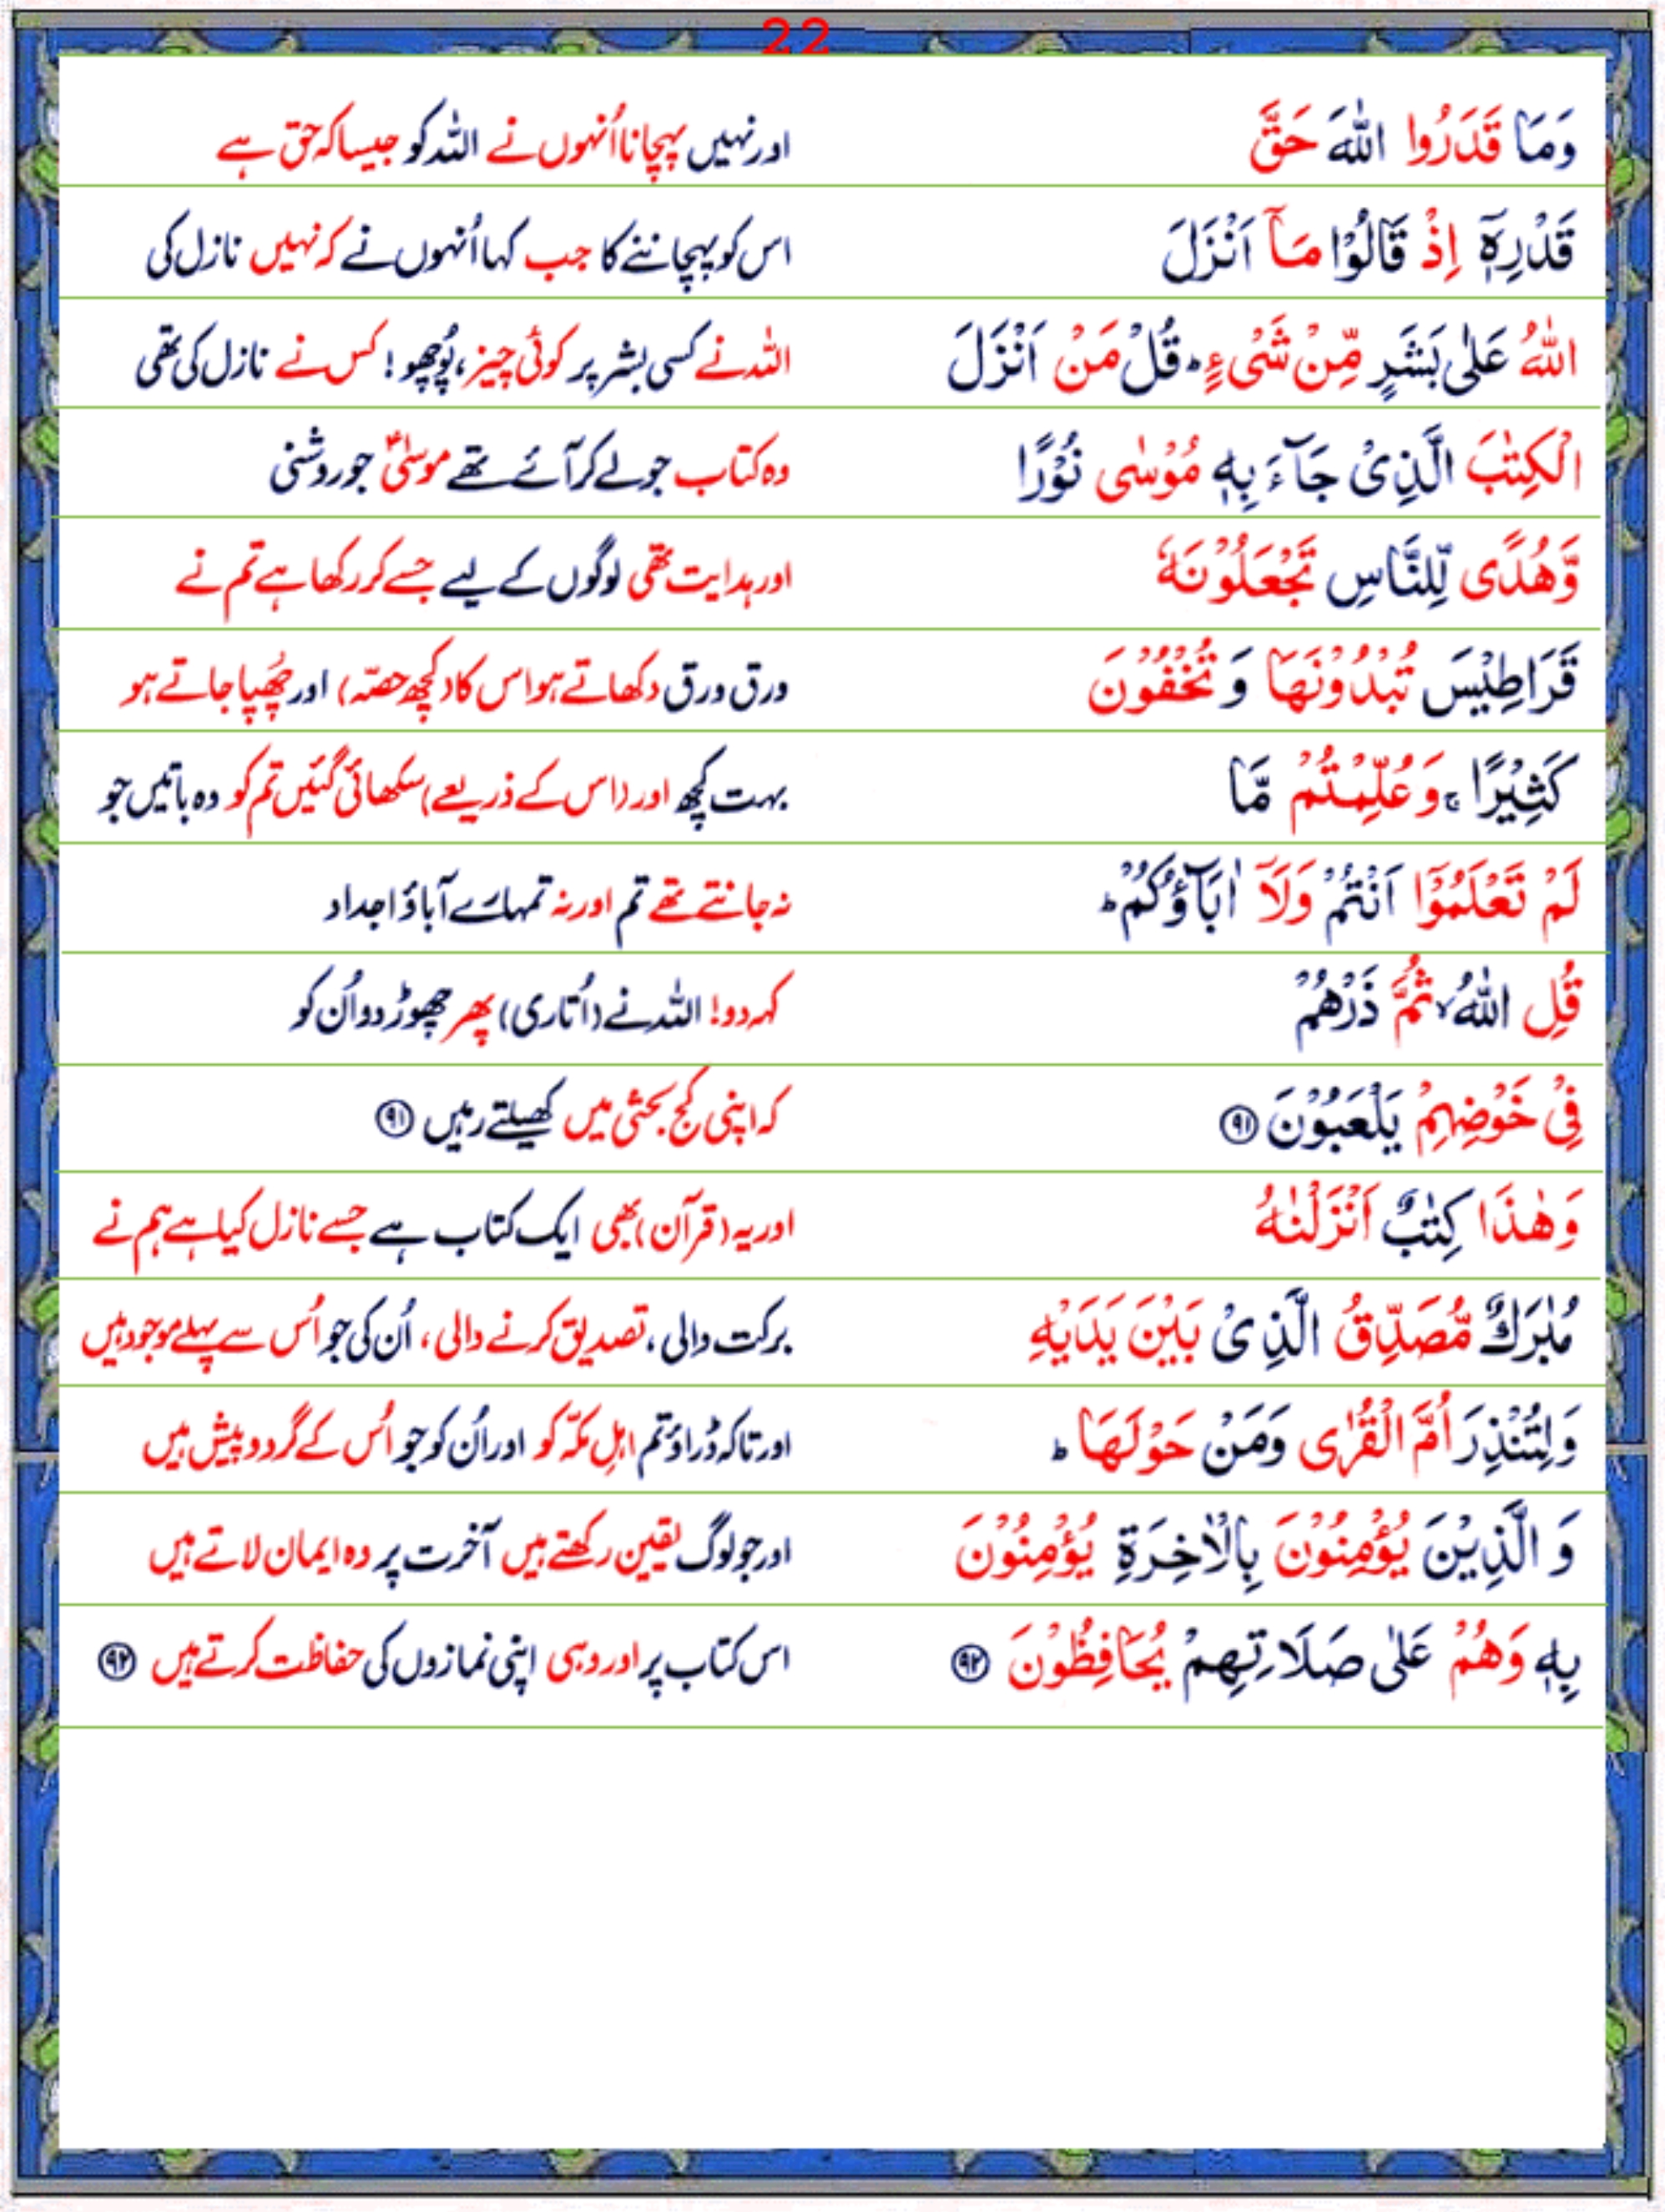 22
وَمَا قَدَرُوا اللّٰهَ حَقَّ اور نہیں پہچانا اُنہوں نے اللہ کو جیسا کہ حق ہے
قَدْرِهٖۤ اِذْ قَالُوْا مَاۤ اَنْزَلَ اس کو پہچاننے کا جب کہا اُنہوں نے کہ نہیں نازل کی
اللّٰهُ عَلٰى بَشَرٍ مِّنْ شَیْءٍ ؕ قُلْ مَنْ اَنْزَلَ اللہ نے کسی بشر پر کوئی چیز، پُوچھو! کس نے نازل کی تھی
الْكِتٰبَ الَّذِیْ جَآءَ بِهٖ مُوْسٰى نُوْرًا وہ کتاب جو لے کر آئے تھے موسیٰؑ جو روشنی
وَّهُدًى لِّلنَّاسِ تَجْعَلُوْنَهٗ اور ہدایت تھی لوگوں کے لیے جسے کر رکھا ہے تم نے
قَرَاطِیْسَ تُبْدُوْنَهَا وَ تُخْفُوْنَ ورق ورق دکھاتے ہو اس کا (کچھ حصّہ) اور چُھپا جاتے ہو
كَثِیْرًا ۚ وَ عُلِّمْتُمْ مَّا بہت کچھ اور (اس کے ذریعے) سکھائی گئیں تم کو وہ باتیں جو
لَمْ تَعْلَمُوْۤا اَنْتُمْ وَلَاۤ اٰبَآؤُكُمْ ؕ نہ جانتے تھے تم اور نہ تمہارے آباؤ اجداد
قُلِ اللّٰهُ ۙ ثُمَّ ذَرْهُمْ کہہ دو! اللہ نے (اُتاری) پھر چھوڑ دو اُن کو
فِیْ خَوْضِهِمْ یَلْعَبُوْنَ ﴿۹۱﴾ کہ اپنی کج بحثی میں کھیلتے رہیں ﴿۹۱﴾
وَهٰذَا كِتٰبٌ اَنْزَلْنٰهُ اور یہ (قرآن) بھی ایک کتاب ہے جسے نازل کیا ہے ہم نے
مُبٰرَكٌ مُّصَدِّقُ الَّذِیْ بَیْنَ یَدَیْهِ برکت والی، تصدیق کرنے والی، اُن کی جو اُس سے پہلے موجود ہیں
وَلِتُنْذِرَ اُمَّ الْقُرٰى وَمَنْ حَوْلَهَا ؕ اور تاکہ ڈراؤ تم اہلِ مکّہ کو اور اُن کو جو اُس کے گرد و پیش ہیں
وَ الَّذِیْنَ یُؤْمِنُوْنَ بِالْاٰخِرَةِ یُؤْمِنُوْنَ اور جو لوگ یقین رکھتے ہیں آخرت پر وہ ایمان لاتے ہیں
بِهٖ وَهُمْ عَلٰى صَلَاتِهِمْ یُحَافِظُوْنَ ﴿۹۲﴾ اس کتاب پر اور وہی اپنی نمازوں کی حفاظت کرتے ہیں ﴿۹۲﴾